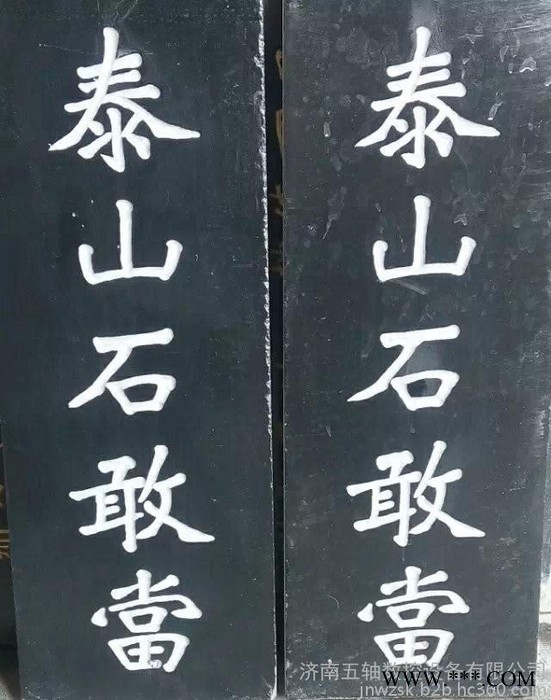 泰山石敢當
泰山石敢當
济南五轴数控设备有限公司
jnwzsk.b2b.hc360.com
www.***.COM